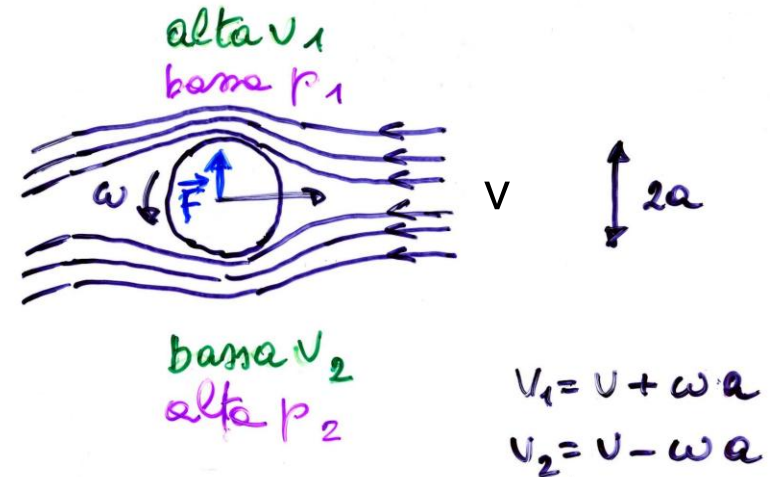 alta v₁
bassa p₁
ω
F⃗
V
2a
bassa v₂
alta p₂
V₁ = V + ω a
V₂ = V − ω a